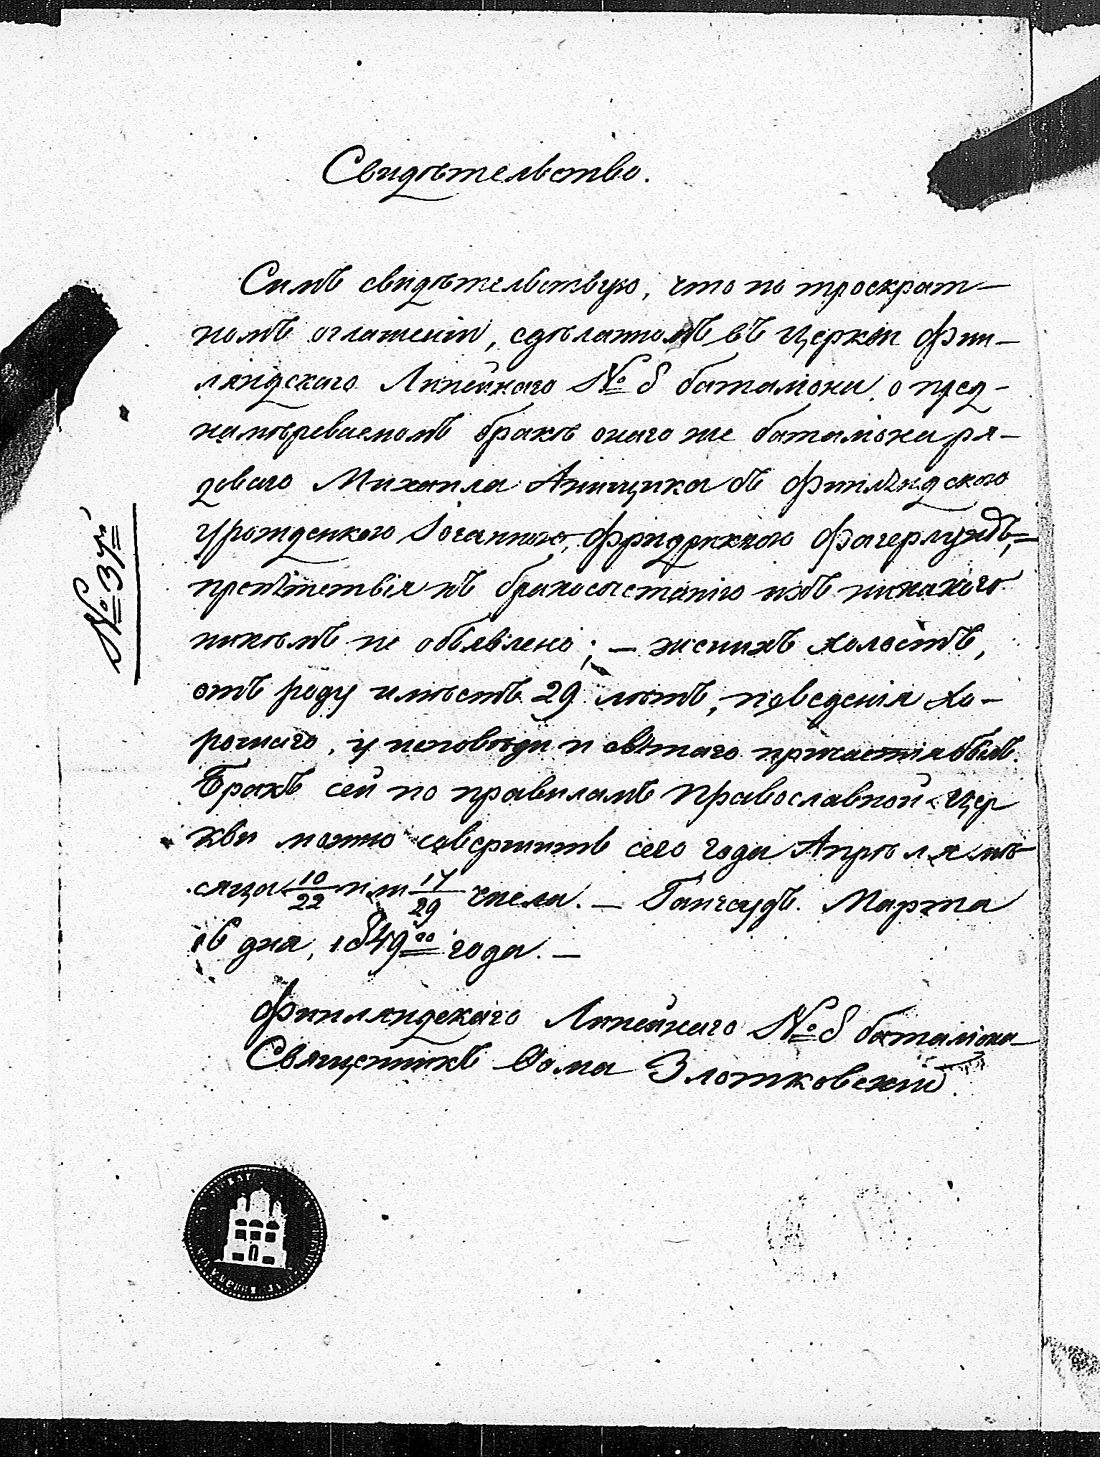 Свидѣтельство.
Симъ свидѣтельствую, что по троекрат-
номъ оглашеніи, сдѣланномъ въ Церкви Фин-
ляндскаго Линейнаго № 8 баталіона, о пред-
намѣреваемомъ бракѣ онаго же баталіона ря-
доваго Михаила Анищика съ Финляндскою
урожденкою Іоганною, Фридрикою Фагерлундъ,-
препѣтствія къ бракосостоянію ихъ никакого
никѣмъ не объявлено; - женихъ холостъ,
отъ роду имѣетъ 29 лѣтъ, поведенія хо-
рошаго, у исповѣди и свѣтаго причастія былъ.
Бракъ сей по правиламъ Православной Цер
кви можно совершить сего года Апрѣля мѣ-
сяца 10/22 или 17/29 числа. - Гангеудъ. Марта
16 дня, 1849го года. -
Финляндскаго Линейнаго № 8 баталіона
Священникъ Ѳома Злотковскій.
№ 37й